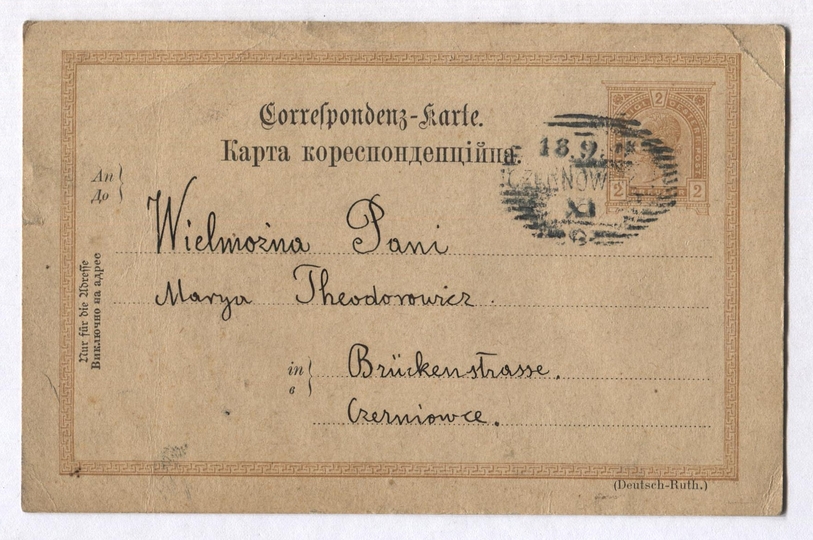 2 2 2
Correspondenz-Karte.
Карта кореспонденційна.
18.9.
CZERNOW
An
До
Wielmożna Pani
Marya Theodorowicz.
in
в
Brückenstrasse.
Czerniowce.
Nur für die Adresse
Виключно на адрес
(Deutsch-Ruth.)